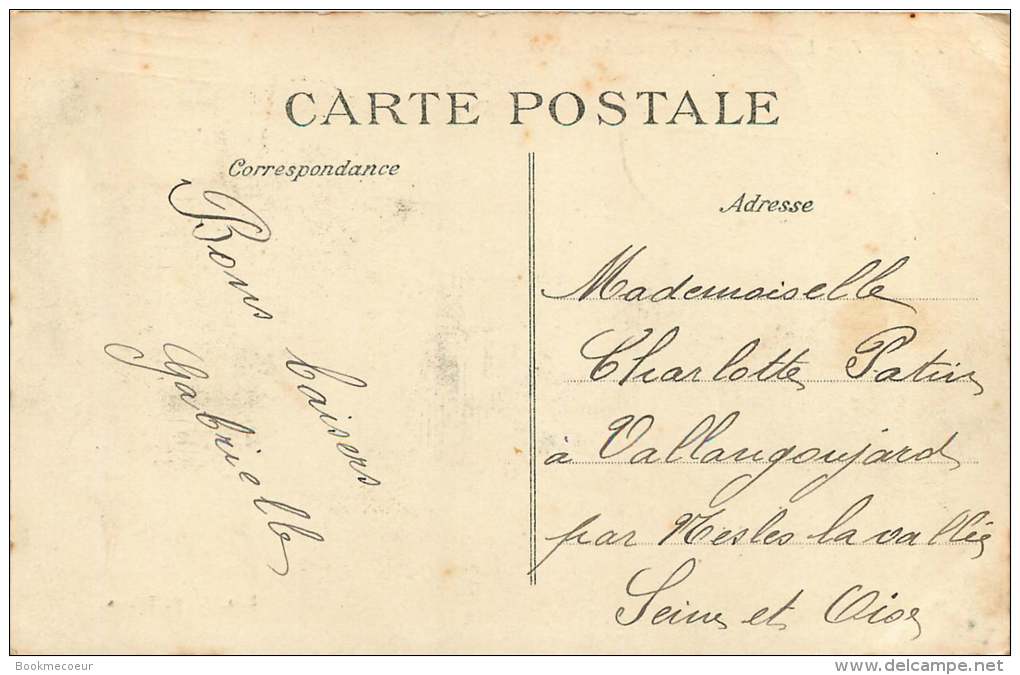 CARTE POSTALE
Correspondance
Bons baisers
Gabrielle
Adresse
Mademoiselle
Charlotte Patin
à Vallangoujard
par Nesles la vallée
Seine et Oise
Bookmecoeur
www.delcampe.net